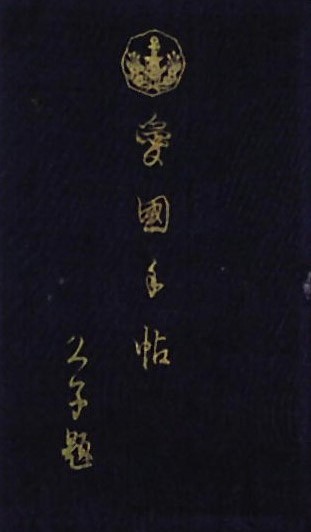 愛國手帖
公子題